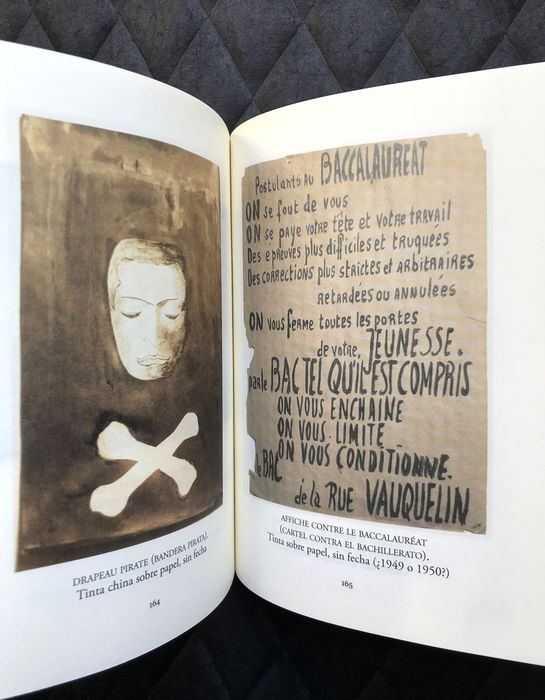 DRAPEAU PIRATE (BANDERA PIRATA).
Tinta china sobre papel, sin fecha
164
Postulants AU BACCALAUREAT
ON se fout de vous
ON se paye votre tête et votre travail
Des epreuves plus difficiles et truquées
Des corrections plus strictes et arbitraires
retardées ou annulées
ON vous ferme toutes les portes
de votre JEUNESSE.
par le BAC TEL QU'IL EST COMPRIS
ON VOUS ENCHAINE
ON VOUS LIMITE
ON VOUS CONDITIONNE.
le BAC
de la RUE VAUQUELIN
AFFICHE CONTRE LE BACCALAURÉAT
(CARTEL CONTRA EL BACHILLERATO).
Tinta sobre papel, sin fecha (¿1949 o 1950?)
165